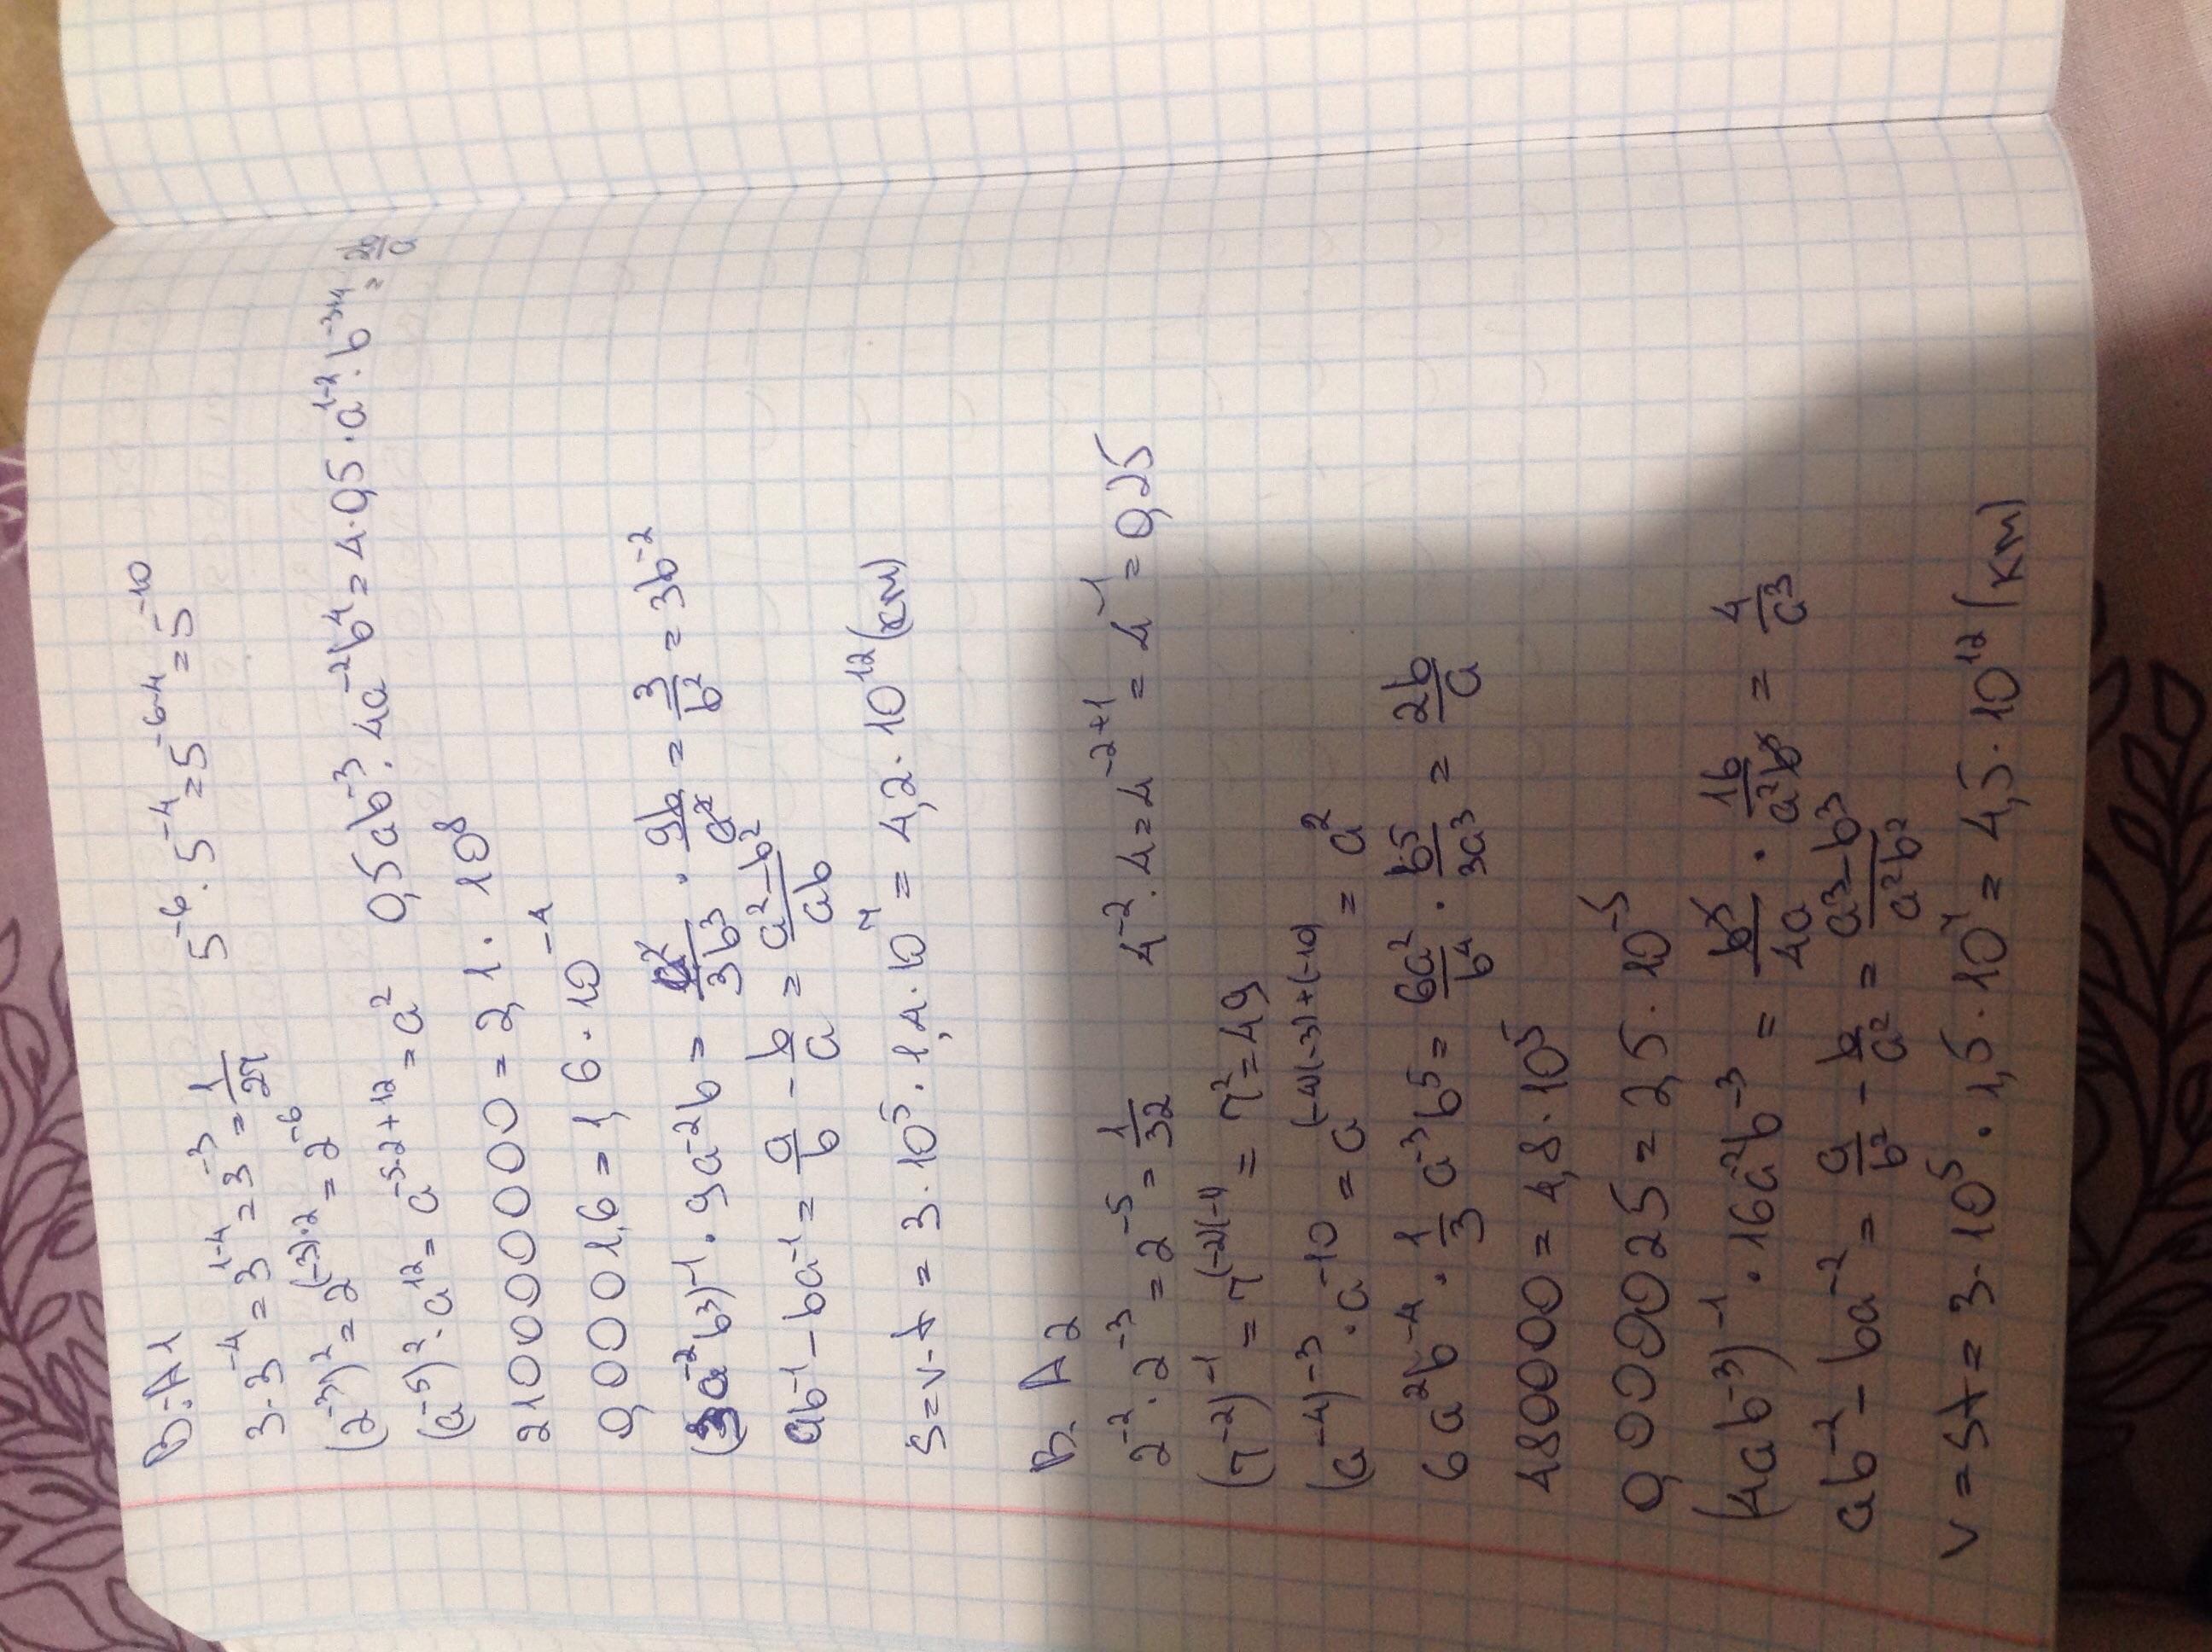 В-А1
3·3⁻⁴=3¹⁻⁴=3⁻³=1/27 5⁻⁶·5⁻⁴=5⁻⁶⁻⁴=5⁻¹⁰
(2⁻³)²=2⁽⁻³⁾·²=2⁻⁶
(a⁻⁵)²·a¹²=a⁻⁵·²⁺¹²=a² 0,5ab⁻³·4a⁻²b⁴=4·0,5·a¹⁻²·b⁻³⁺⁴=2b/a
210000000=2,1·10⁸
0,00016=1,6·10⁻⁴
(3a⁻²b³)⁻¹·9a⁻²b=a²/3b³·9b/a²=3/b²=3b⁻²
ab⁻¹-ba⁻¹=a/b-b/a=a²-b²/ab
S=v·t=3·10⁵·1,4·10⁷=4,2·10¹²(км)
В-А2
2⁻²·2⁻³=2⁻⁵=1/32 4⁻²·4=4⁻²⁺¹=4⁻¹=0,25
(7⁻²)⁻¹=7⁽⁻²⁾⁽⁻¹⁾=7²=49
(a⁻⁴)⁻³·a⁻¹⁰=a⁽⁻⁴⁾⁽⁻³⁾⁺⁽⁻¹⁰⁾=a²
6a²b⁻⁴·1/3a⁻³b⁵=6a²/b⁴·b⁵/3a³=2b/a
480000=4,8·10⁵
0,000025=2,5·10⁻⁵
(4ab⁻³)⁻¹·16a⁻²b⁻³=b³/4a·16/a²b³=4/a³
ab⁻²-ba⁻²=a/b²-b/a²=a³-b³/a²b²
v=St=3·10⁵·1,5·10⁷=4,5·10¹²(км)